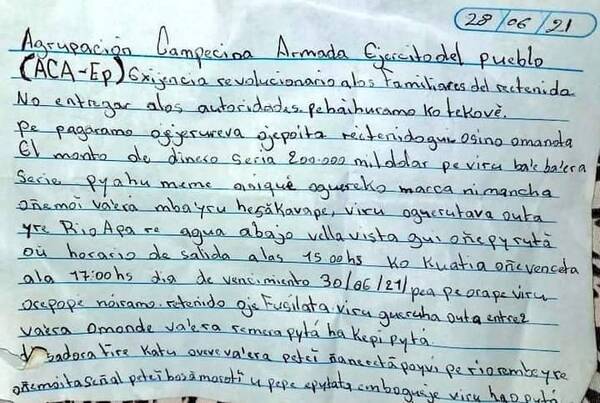 28/06/21
Agrupación Campecina Armada Ejercito del pueblo
(ACA-Ep) Exijencia revolucionario alos Familiares del rectenida
No entregar alas autoridades pehaihuramo ko tekovë.
pe pagáramo ojejerureva ojepoita rectenidogui osino omanota
El monto de dinero seria 200.000 mil dolar pe viru ha'e ba'era
Serie pyahu meme anique oguereko marca ni mancha
oñemoi va'erá mba'yru hesãkavape, viru oguerutava outa
yre Rio Apa re agua abajo vella vista gui oñepyrutã
oú horario de salida a las 15:00 hs ko Kuatia oñevenceta
ala 17:00 hs dia de vencimiento 30/06/21/ pea pe orape viru
orepope nóiramo. retenido oje Fusilata viru gueruha outa entre 2
va'era omonde va'era remera pytá ha Kepi pytá.
Katu oveve va'era petei pe rio rembeyre
Señal petei morotí u pepe epytata embogueje viru ha o putá